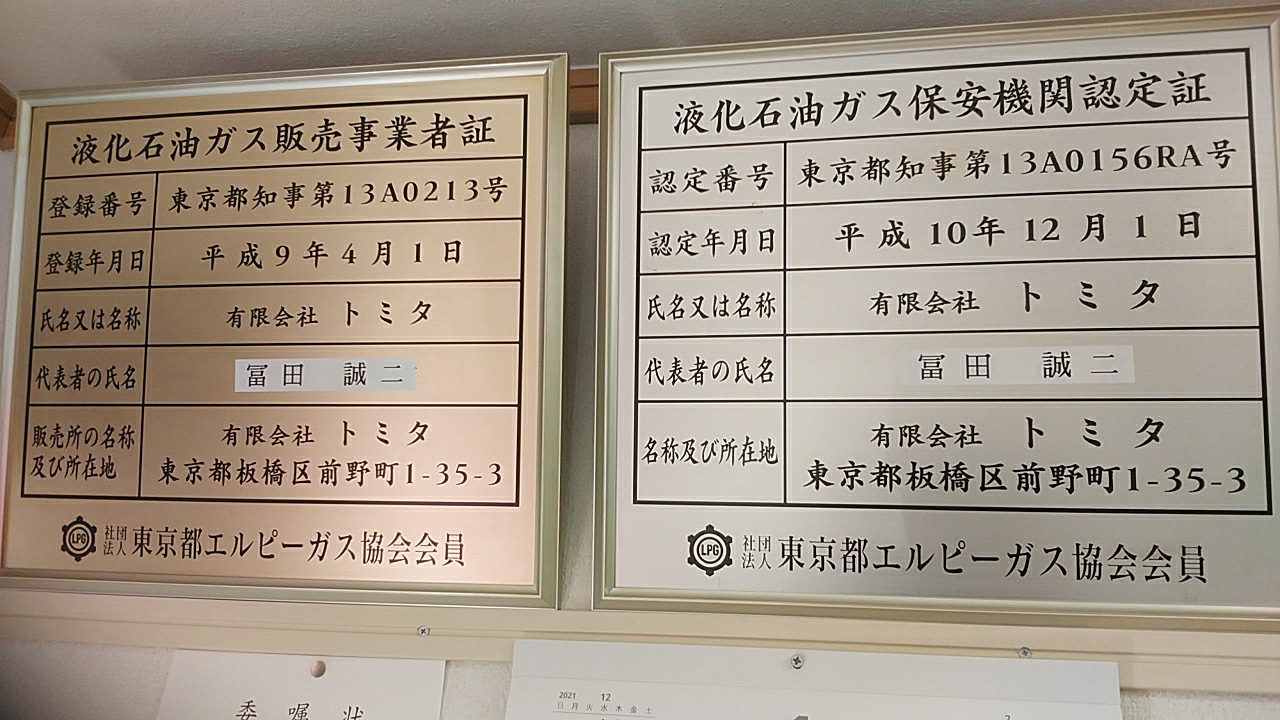 液化石油ガス販売事業者証
登録番号 東京都知事第13A0213号
登録年月日 平成9年4月1日
氏名又は名称 有限会社 トミタ
代表者の氏名 冨田 誠二
販売所の名称
及び所在地
有限会社 トミタ
東京都板橋区前野町1-35-3
LPG 社団法人 東京都エルピーガス協会会員
液化石油ガス保安機関認定証
認定番号 東京都知事第13A0156RA号
認定年月日 平成10年12月1日
氏名又は名称 有限会社 トミタ
代表者の氏名 冨田 誠二
名称及び所在地
有限会社 トミタ
東京都板橋区前野町1-35-3
LPG 社団法人 東京都エルピーガス協会会員
委嘱状
2021 12
日 月 火 水 木 金 土